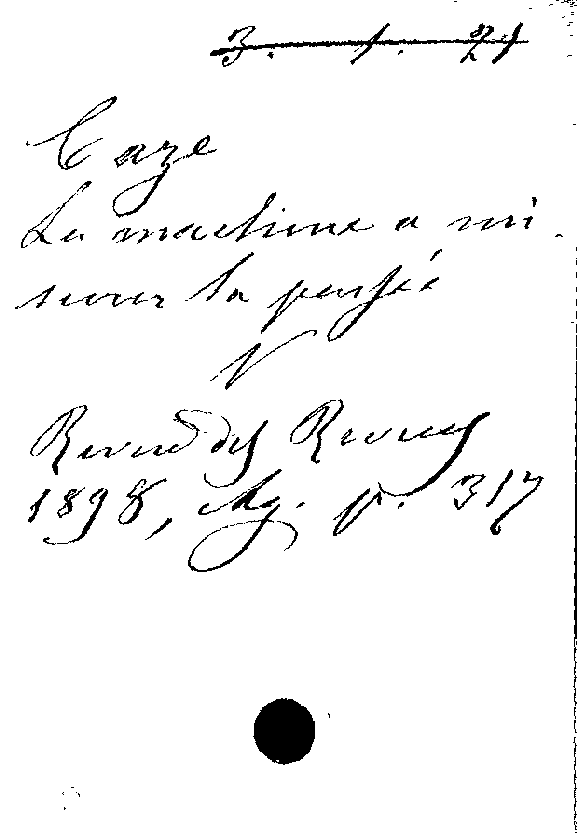 3. 1. 21
Caze
La machine a mé-
surer la pensée
V
Revue des Revues
1898, Ag. p. 317